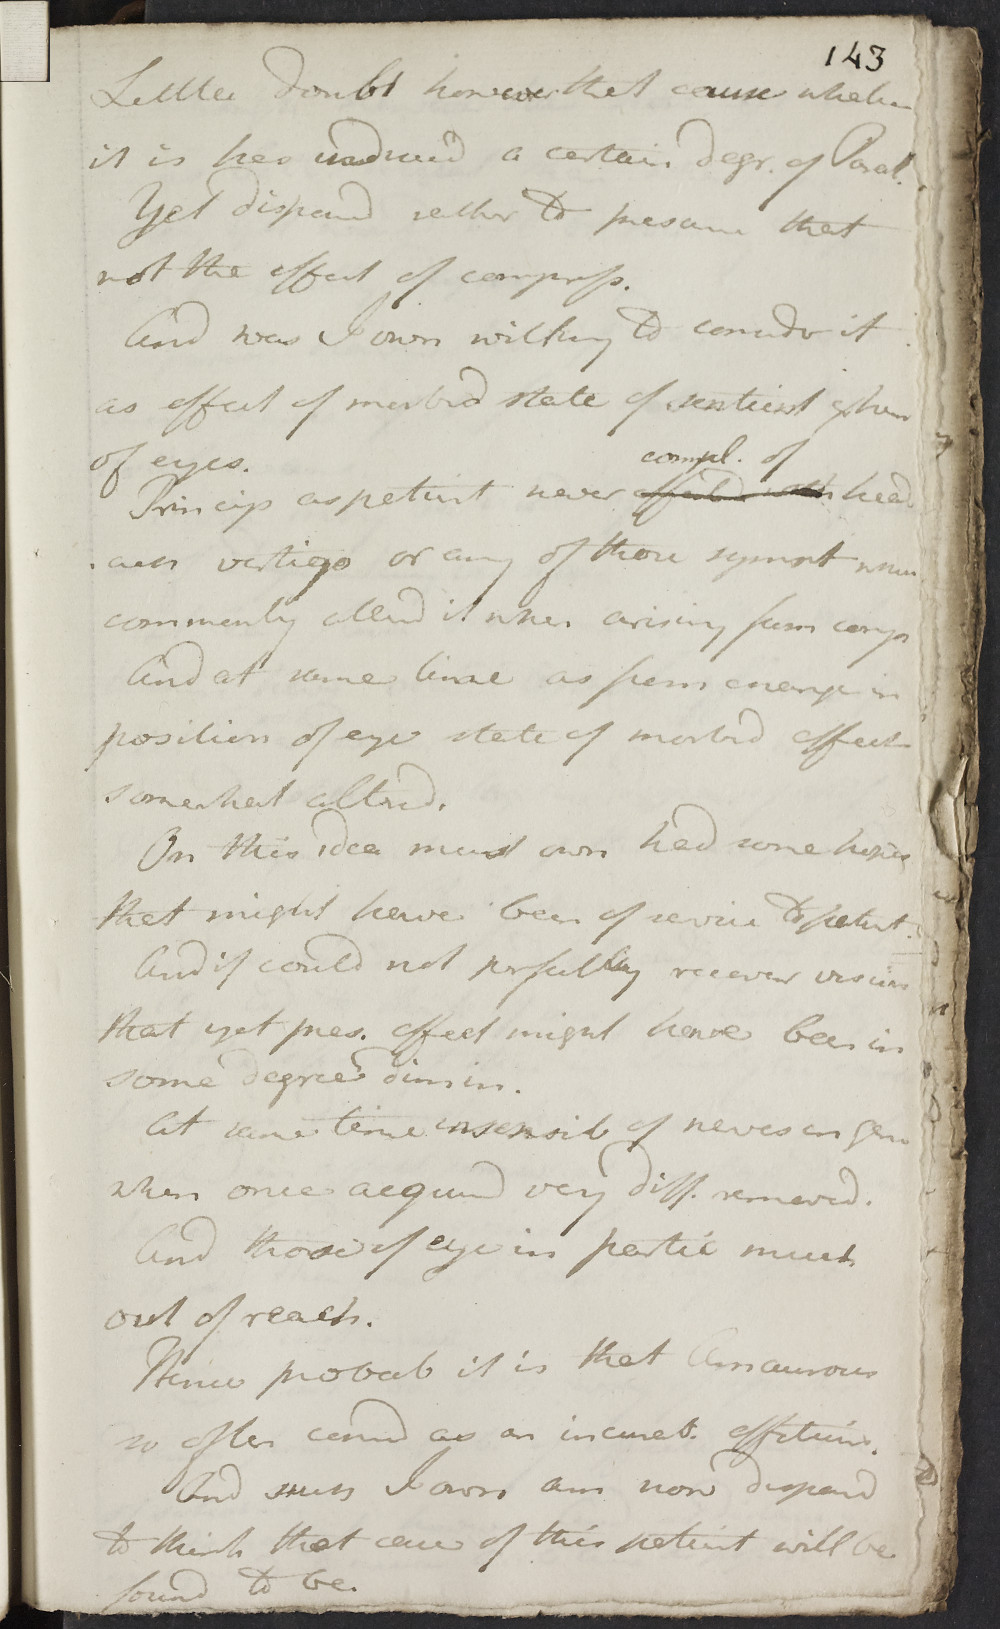 143
Little doubt however that cause whatever
it is has induced a certain degr. of Paral.
Yet disposed rather to presume that
not the effect of compress.
And was I own willing to consider it
as effect of morbid state of sentient
of eyes.
compl. of
Princip as patient never head
ach vertigo or any of those sympt when
commonly attend it when arising from comp
And at same time as from change in
position of eye state of morbid affect
somewhat altered.
On this idea must own had some hopes
that might have been of service to patient.
And if could not perfectly recover vision
that yet pres. affect might have been in
some degree dimin.
At same time insensib of nerves in gen
when once acquired very diff. removed.
And those of eye in partic much
out of reach.
Hence probab it is that Amaurosis
so often consid as an incurab. affection.
And such I own am now disposed
to think that case of this patient will be
found to be.